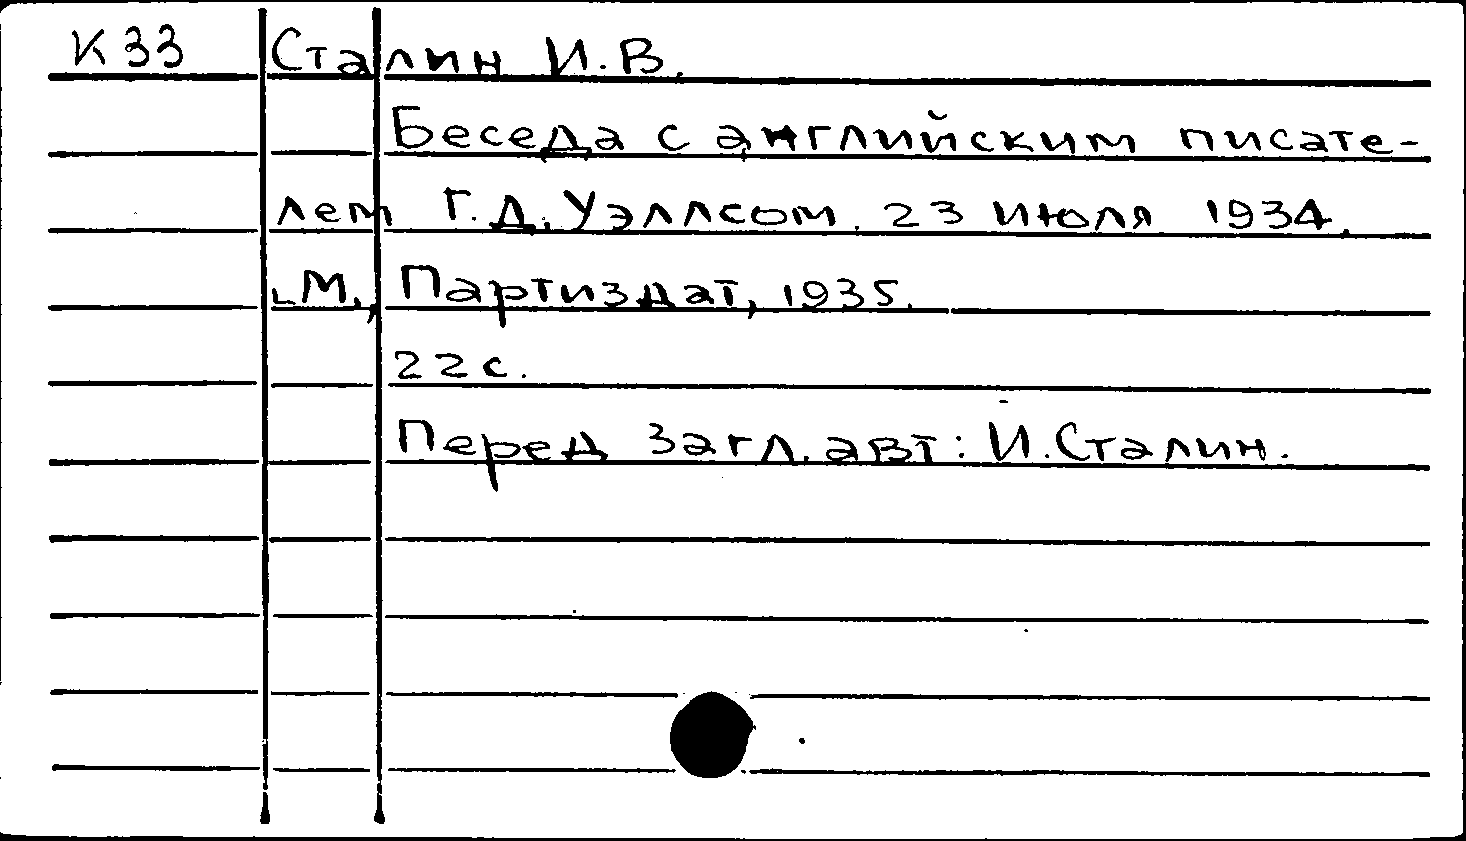 К33 Сталин И.В.
Беседа с английским писате-
лем Г.Д. Уэллсом. 23 июля 1934.
М., Партиздат, 1935.
22 с.
Перед загл. авт: И. Сталин.